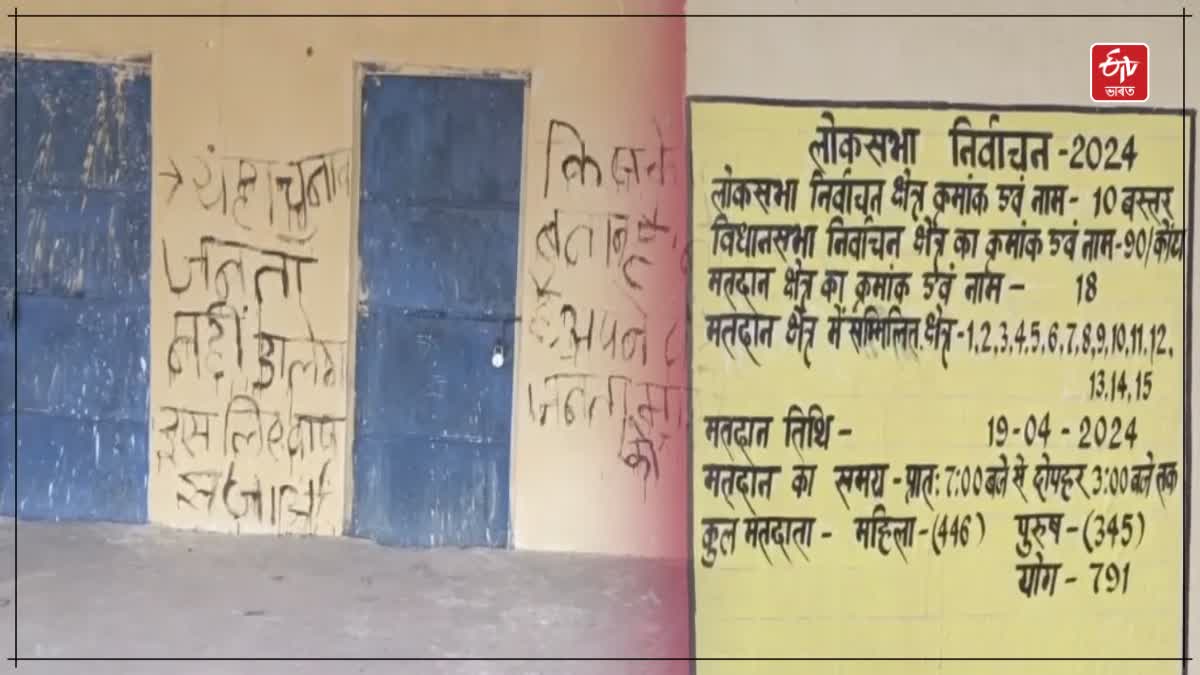 → यहा चुनाव
जनता
नहीं डालेगा
इस लिए वाप
स जाओ
कि
जनता
को
ETV
ভাৰত
लोकसभा निर्वाचन -2024
लोकसभा निर्वाचन क्षेत्र क्रमांक एवं नाम - 10 बस्तर
विधानसभा निर्वाचन क्षेत्र का क्रमांक एवं नाम-90/कोंटा
मतदान क्षेत्र का क्रमांक एवं नाम - 18
मतदान क्षेत्र में सम्मिलित क्षेत्र -1,2,3,4,5,6,7,8,9,10,11,12,
13,14,15
मतदान तिथि - 19-04-2024
मतदान का समय -प्रातः 7:00 बजे से दोपहर 3:00 बजे तक
कुल मतदाता - महिला-(446) पुरुष-(345)
योग - 791